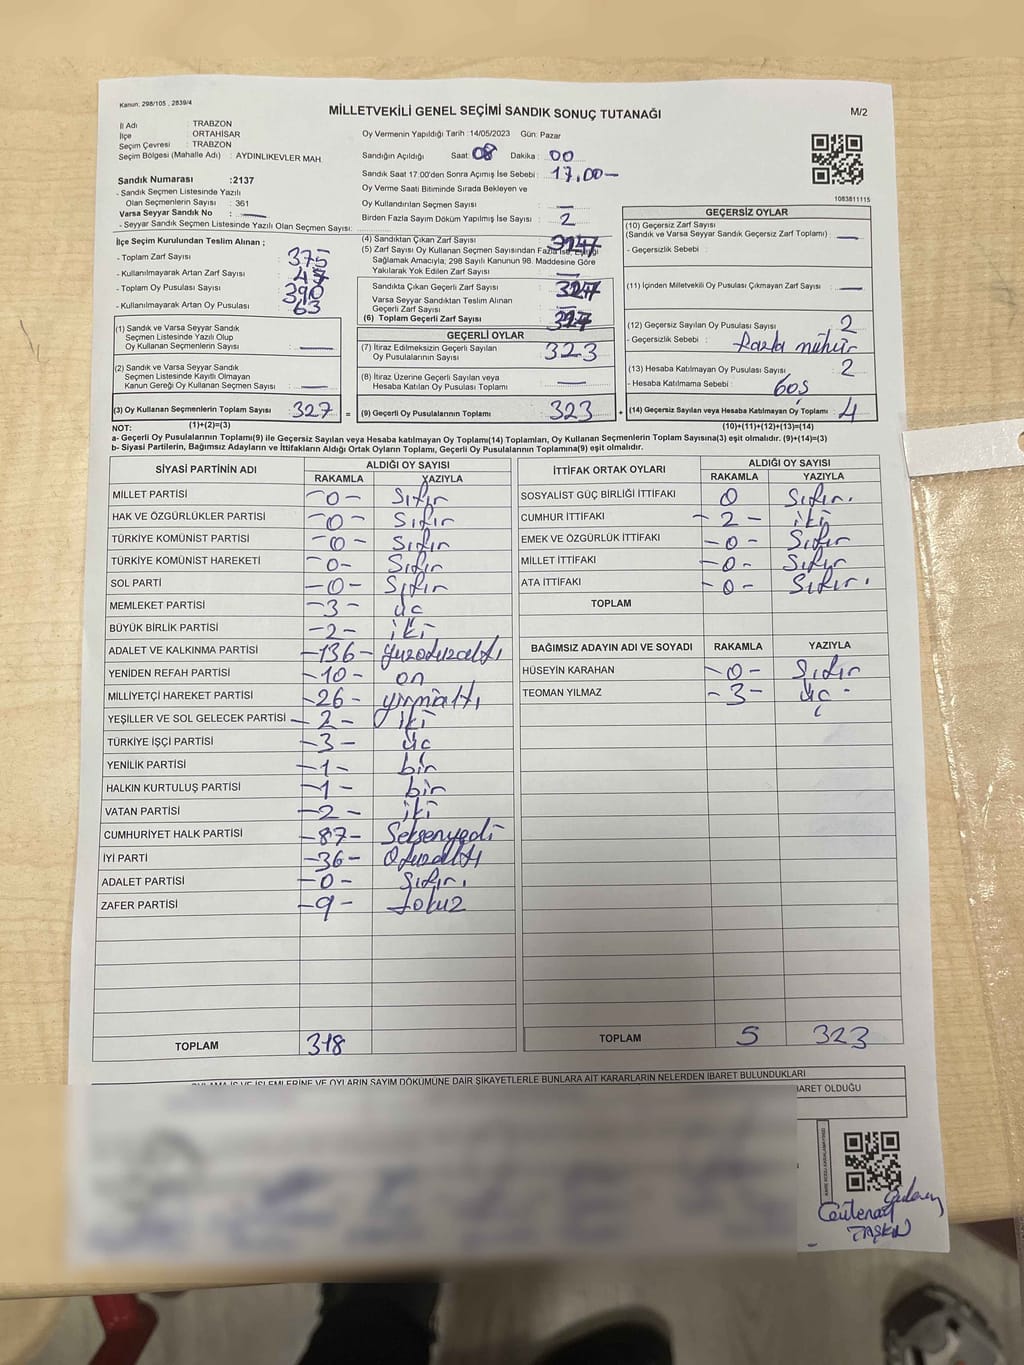 Kanun, 298/105 , 2839/4
MİLLETVEKİLİ GENEL SEÇİMİ SANDIK SONUÇ TUTANAĞI
M/2
İl Adı : TRABZON
İlçe : ORTAHİSAR
Seçim Çevresi : TRABZON
Seçim Bölgesi (Mahalle Adı) : AYDINLIKEVLER MAH.
Sandık Numarası :2137
- Sandık Seçmen Listesinde Yazılı
Olan Seçmenlerin Sayısı : 361
Varsa Seyyar Sandık No : —
- Seyyar Sandık Seçmen Listesinde Yazılı Olan Seçmen Sayısı:
Oy Vermenin Yapıldığı Tarih :14/05/2023 Gün: Pazar
Sandığın Açıldığı Saat: 08 Dakika : 00
Sandık Saat 17.00'den Sonra Açımış İse Sebebi : 17,00—
Oy Verme Saati Bitiminde Sırada Bekleyen ve
Oy Kullandırılan Seçmen Sayısı : —
Birden Fazla Sayım Döküm Yapılmış İse Sayısı : 2
1083811115
İlçe Seçim Kurulundan Teslim Alınan ;
- Toplam Zarf Sayısı : 375
- Kullanılmayarak Artan Zarf Sayısı :
- Toplam Oy Pusulası Sayısı : 390
- Kullanılmayarak Artan Oy Pusulası : 63
(1) Sandık ve Varsa Seyyar Sandık
Seçmen Listesinde Yazılı Olup
Oy Kullanan Seçmenlerin Sayısı : —
(2) Sandık ve Varsa Seyyar Sandık
Seçmen Listesinde Kayıtlı Olmayan
Kanun Gereği Oy Kullanan Seçmen Sayısı : —
(3) Oy Kullanan Seçmenlerin Toplam Sayısı : 327 =
(4) Sandıktan Çıkan Zarf Sayısı
(5) Zarf Sayısı Oy Kullanan Seçmen Sayısından Fazla İse, Eşitliği
Sağlamak Amacıyla; 298 Sayılı Kanunun 98. Maddesine Göre
Yakılarak Yok Edilen Zarf Sayısı : —
Sandıkta Çıkan Geçerli Zarf Sayısı :
Varsa Seyyar Sandıktan Teslim Alınan
Geçerli Zarf Sayısı : —
(6) Toplam Geçerli Zarf Sayısı :
GEÇERLİ OYLAR
(7) İtiraz Edilmeksizin Geçerli Sayılan
Oy Pusulalarının Sayısı : 323
(8) İtiraz Üzerine Geçerli Sayılan veya
Hesaba Katılan Oy Pusulası Toplamı : —
(9) Geçerli Oy Pusulalarının Toplamı : 323 +
GEÇERSİZ OYLAR
(10) Geçersiz Zarf Sayısı
(Sandık ve Varsa Seyyar Sandık Geçersiz Zarf Toplamı) : —
- Geçersizlik Sebebi :
(11) İçinden Milletvekili Oy Pusulası Çıkmayan Zarf Sayısı : —
(12) Geçersiz Sayılan Oy Pusulası Sayısı : 2
- Geçersizlik Sebebi : fazla mühür
(13) Hesaba Katılmayan Oy Pusulası Sayısı : 2
- Hesaba Katılmama Sebebi : boş
(14) Geçersiz Sayılan veya Hesaba Katılmayan Oy Toplamı : 4
NOT: (1)+(2)=(3)
(10)+(11)+(12)+(13)=(14)
a- Geçerli Oy Pusulalarının Toplamı(9) ile Geçersiz Sayılan veya Hesaba katılmayan Oy Toplamı(14) Toplamları, Oy Kullanan Seçmenlerin Toplam Sayısına(3) eşit olmalıdır. (9)+(14)=(3)
b- Siyasi Partilerin, Bağımsız Adayların ve İttifakların Aldığı Ortak Oyların Toplamı, Geçerli Oy Pusulalarının Toplamına(9) eşit olmalıdır.
SİYASİ PARTİNİN ADI ALDIĞI OY SAYISI
RAKAMLA YAZIYLA
MİLLET PARTİSİ —0— Sıfır
HAK VE ÖZGÜRLÜKLER PARTİSİ —0— Sıfır
TÜRKİYE KOMÜNİST PARTİSİ —0— Sıfır
TÜRKİYE KOMÜNİST HAREKETİ —0— Sıfır
SOL PARTİ —0— Sıfır
MEMLEKET PARTİSİ —3— üç
BÜYÜK BİRLİK PARTİSİ —2— iki
ADALET VE KALKINMA PARTİSİ —136— yüzotuzaltı
YENİDEN REFAH PARTİSİ —10— on
MİLLİYETÇİ HAREKET PARTİSİ —26— yirmialtı
YEŞİLLER VE SOL GELECEK PARTİSİ —2— iki
TÜRKİYE İŞÇİ PARTİSİ —3— üç
YENİLİK PARTİSİ —1— bir
HALKIN KURTULUŞ PARTİSİ —1— bir
VATAN PARTİSİ —2— iki
CUMHURİYET HALK PARTİSİ —87— Seksenyedi
İYİ PARTİ —36— Otuzaltı
ADALET PARTİSİ —0— Sıfır.
ZAFER PARTİSİ —9— dokuz
TOPLAM 318
İTTİFAK ORTAK OYLARI ALDIĞI OY SAYISI
RAKAMLA YAZIYLA
SOSYALİST GÜÇ BİRLİĞİ İTTİFAKI 0 Sıfır.
CUMHUR İTTİFAKI —2— iki
EMEK VE ÖZGÜRLÜK İTTİFAKI —0— Sıfır
MİLLET İTTİFAKI —0— Sıfır
ATA İTTİFAKI —0— Sıfır.
TOPLAM
BAĞIMSIZ ADAYIN ADI VE SOYADI RAKAMLA YAZIYLA
HÜSEYİN KARAHAN —0— Sıfır
TEOMAN YILMAZ —3— üç
TOPLAM 5 323
OYLAMA İŞ VE İŞLEMLERİNE VE OYLARIN SAYIM DÖKÜMÜNE DAİR ŞİKAYETLERLE BUNLARA AİT KARARLARIN NELERDEN İBARET BULUNDUKLARI
İBARET OLDUĞU
TAŞKIN